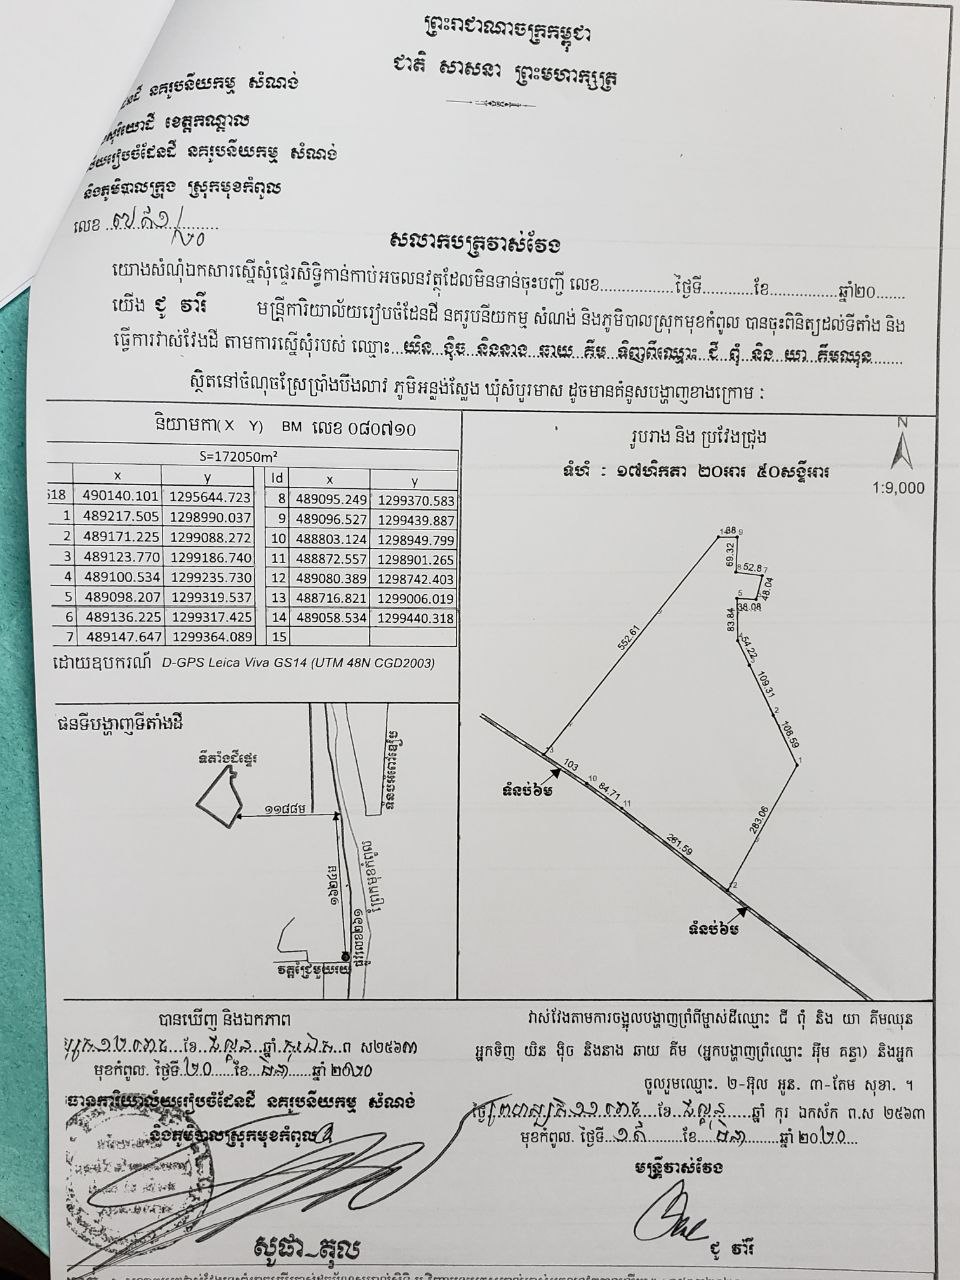 ព្រះរាជាណាចក្រកម្ពុជា
ជាតិ សាសនា ព្រះមហាក្សត្រ
ដែនដី នគរូបនីយកម្ម សំណង់
សុរិយោដី ខេត្តកណ្តាល
រៀបចំដែនដី នគរូបនីយកម្ម សំណង់
និងភូមិបាលក្រុង ស្រុកមុខកំពូល
លេខ
សលាកបត្រវាស់វែង
យោងសំណុំឯកសារស្នើសុំផ្ទេរសិទ្ធិកាន់កាប់អចលនវត្ថុដែលមិនទាន់ចុះបញ្ជី លេខ.................ថ្ងៃទី............ខែ...............ឆ្នាំ២០.......
យើង ជូ វ៉ារី មន្ត្រីការិយាល័យរៀបចំដែនដី នគរូបនីយកម្ម សំណង់ និងភូមិបាលស្រុកមុខកំពូល បានចុះពិនិត្យដល់ទីតាំង និង
ធ្វើការវាស់វែងដី តាមការស្នើសុំរបស់ ឈ្មោះ...យិន ង៉ិច និងនាង ឆាយ គីម ទិញពីឈ្មោះ ជី ពុំ និង យា គីមឈុន
ស្ថិតនៅចំណុចស្រែប្រាំងបឹងលាវ ភូមិអន្លង់ស្លែង ឃុំសំបួរមាស ដូចមានគំនូសបង្ហាញខាងក្រោម ៈ
និយាមកា( X Y) BM លេខ ០៨០៧១០
S=172050m²
x y Id x y
618 490140.101 1295644.723 8 489095.249 1299370.583
1 489217.505 1298990.037 9 489096.527 1299439.887
2 489171.225 1299088.272 10 488803.124 1298949.799
3 489123.770 1299186.740 11 488872.557 1298901.265
4 489100.534 1299235.730 12 489080.389 1298742.403
5 489098.207 1299319.537 13 488716.821 1299006.019
6 489136.225 1299317.425 14 489058.534 1299440.318
7 489147.647 1299364.089 15
ដោយឧបករណ៍ D-GPS Leica Viva GS14 (UTM 48N CGD2003)
រូបរាង និង ប្រវែងជ្រុង
ទំហំ : ១៧ហិកតា ២០អារ ៥០សង់ទីអារ
N
1:9,000
14 38 9
69.32
8 52.8 7
48.04
5 38.08
83.84
54.22
109.31
2
108.59
1
283.06
12
261.59
11
84.71
10
103
13
552.61
ទំនប់៦ម
ទំនប់៦ម
ផនទីបង្ហាញទីតាំងដី
ទីតាំងដីផ្ទេរ
១១៨៨ម
វត្តជ្រៃមួយរយ
បានឃើញ និងឯកភាព
មុខកំពូល. ថ្ងៃទី.២០.....ខែ.........ឆ្នាំ ២០២០
ការិយាល័យរៀបចំដែនដី នគរូបនីយកម្ម សំណង់
និងភូមិបាលស្រុកមុខកំពូល
សូផា_តុល
វាស់វែងតាមការចង្អុលបង្ហាញព្រំពីម្ចាស់ដីឈ្មោះ ជី ពុំ និង យា គីមឈុន
អ្នកទិញ យិន ង៉ិច និងនាង ឆាយ គីម (អ្នកបង្ហាញព្រំឈ្មោះ អ៊ឹម គន្ធា) និងអ្នក
ចូលរួមឈ្មោះ. ២-អ៊ុល អូន. ៣-តែម សុខា. ។
ឆ្នាំ កុរ ឯកស័ក ព.ស ២៥៦៣
មុខកំពូល. ថ្ងៃទី..........ខែ..........ឆ្នាំ ២០២០...
មន្ត្រីវាស់វែង
ជូ វ៉ារី